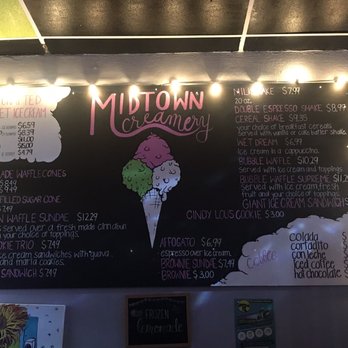 MIDTOWN
Creamery
ET ICECREAM
$6.59
$8.39
$4.79
ADE WAFFLECONES
FILLED SUGAR CONE
$7.49
N WAFFLE SUNDAE $12.29
served over a fresh made cinnabun
your choice of toppings.
KIE TRIO $7.49
ice cream sandwiches with guava
and maria cookies.
SANDWICH $7.49
AFFOGATO $6.99
espresso over ice cream.
BROWNIE SUNDAE $7.49
BROWNIE $3.00
CINDY LOU'S COOKIE $3.00
MILKSHAKE $7.99
20 oz.
DOUBLE ESPRESSO SHAKE $8.99
CEREAL SHAKE $8.99
your choice of breakfast cereals
served with vanilla or cake batter shakes.
WET DREAM $6.99
ice cream in a cappuccino.
BUBBLE WAFFLE $10.29
Served with ice cream and toppings.
BUBBLE WAFFLE SUPREME $12
Served with ice cream, fresh
fruit and your choice of toppings.
GIANT ICE CREAM SANDWICH
Coffee
colada
cortadito
con leche
iced coffee
hot chocolate
FROZEN
Lemonade